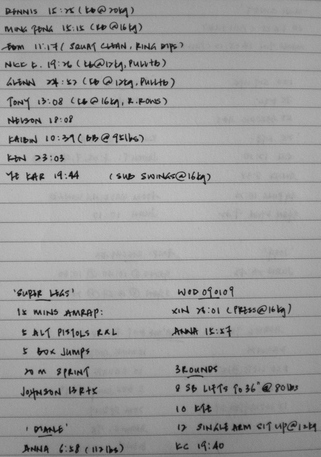 DENNIS 15:25 (KB@20kg)
MING FENG 15:15 (KB@16kg)
EDM 11:17 (SQUAT CLEAN, RING DIPS)
NICK L. 19:26 (KB@12kg, PULLTB)
GLENN 24:52 (KB@12kg, PULLTB)
TONY 13:08 (KB@16kg, R.ROWS)
NELSON 18:08
KAIBIN 10:39 (BB@95lbs)
KEN 23:03
YE KAR 19:44 (SUB SWINGS@16kg)
'SUPER LEGS'
15 MINS AMRAP:
5 ALT PISTOLS RXL
5 BOX JUMPS
20m SPRINT
JOHNSON 13R+5
'DIANE'
ANNA 6:58 (112lbs)
WOD 090109
XIN 28:01 (PRESS@16kg)
ANNA 15:57
3 ROUNDS
8 SB LIFTS TO 36" @ 80lbs
10 KTE
12 SINGLE ARM SIT UP@12kg
KC 19:40